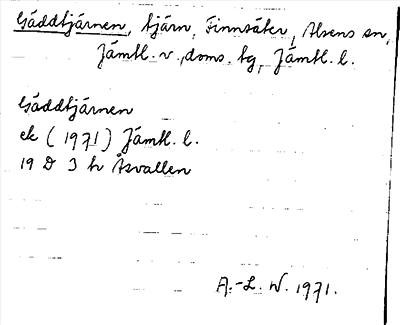 Gäddtjärnen, tjärn, Finnsäter, Alsens sn,
Jämtl. v., doms. tg, Jämtl. l.
Gäddtjärnen
ek (1971) Jämtl. l.
19 D 3 h Åsvallen
A.-L. W. 1971.